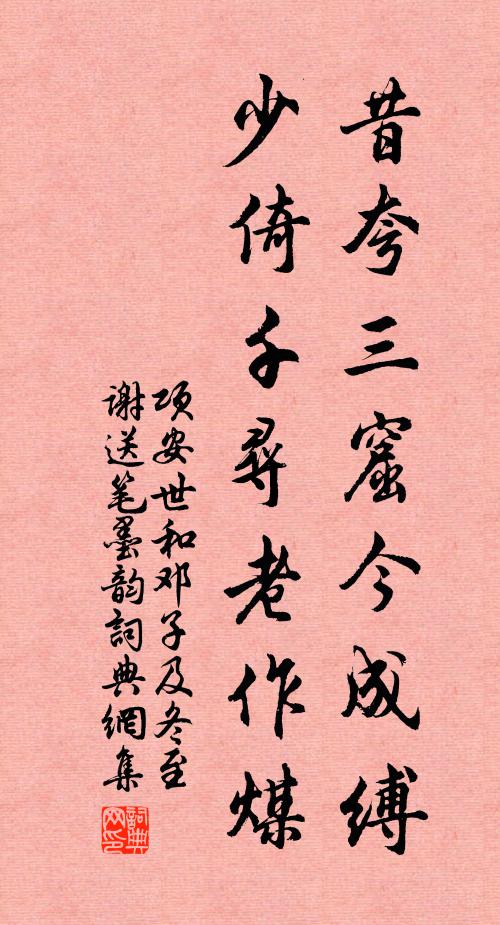 昔夸三窟今成缚
少倚千寻老作煤
项安世和邓子及冬至
谢送笔墨韵詞典網集
詞典网印